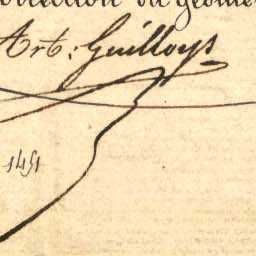 du géomè
Art: Guilloys
1451